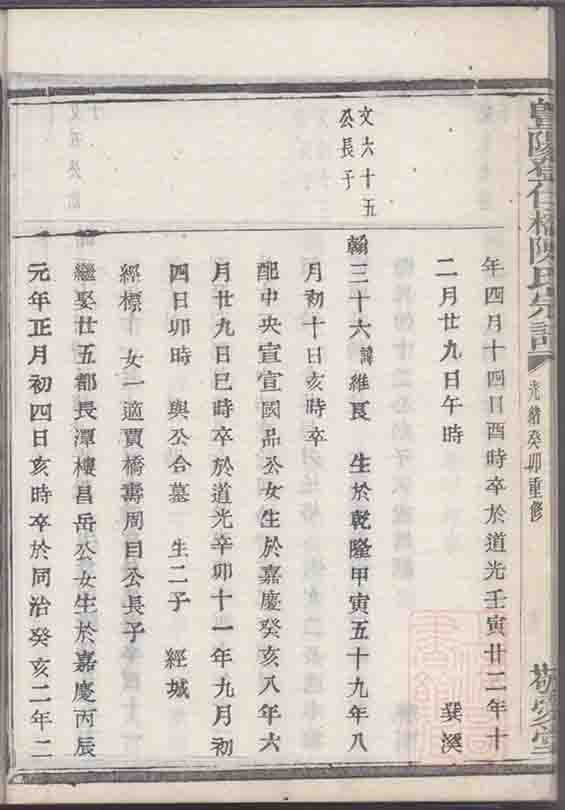 陽登仕橋陳氏宗譜
光緒癸卯重修
年四月十四日酉時卒於道光壬寅廿二年十
二月廿九日午時
文六十五
公長子
翰三十六諱維良 生於乾隆甲寅五十九年八
月初十日亥時卒
配中央宣宣國品公女生於嘉慶癸亥八年六
月廿九日巳時卒於道光辛卯十一年九月初
四日卯時 與公合墓 生二子 經城
經標 女一適賈橋壽周目公長子
繼娶廿五都長潭樓昌岳公女生於嘉慶丙辰
元年正月初四日亥時卒於同治癸亥二年二